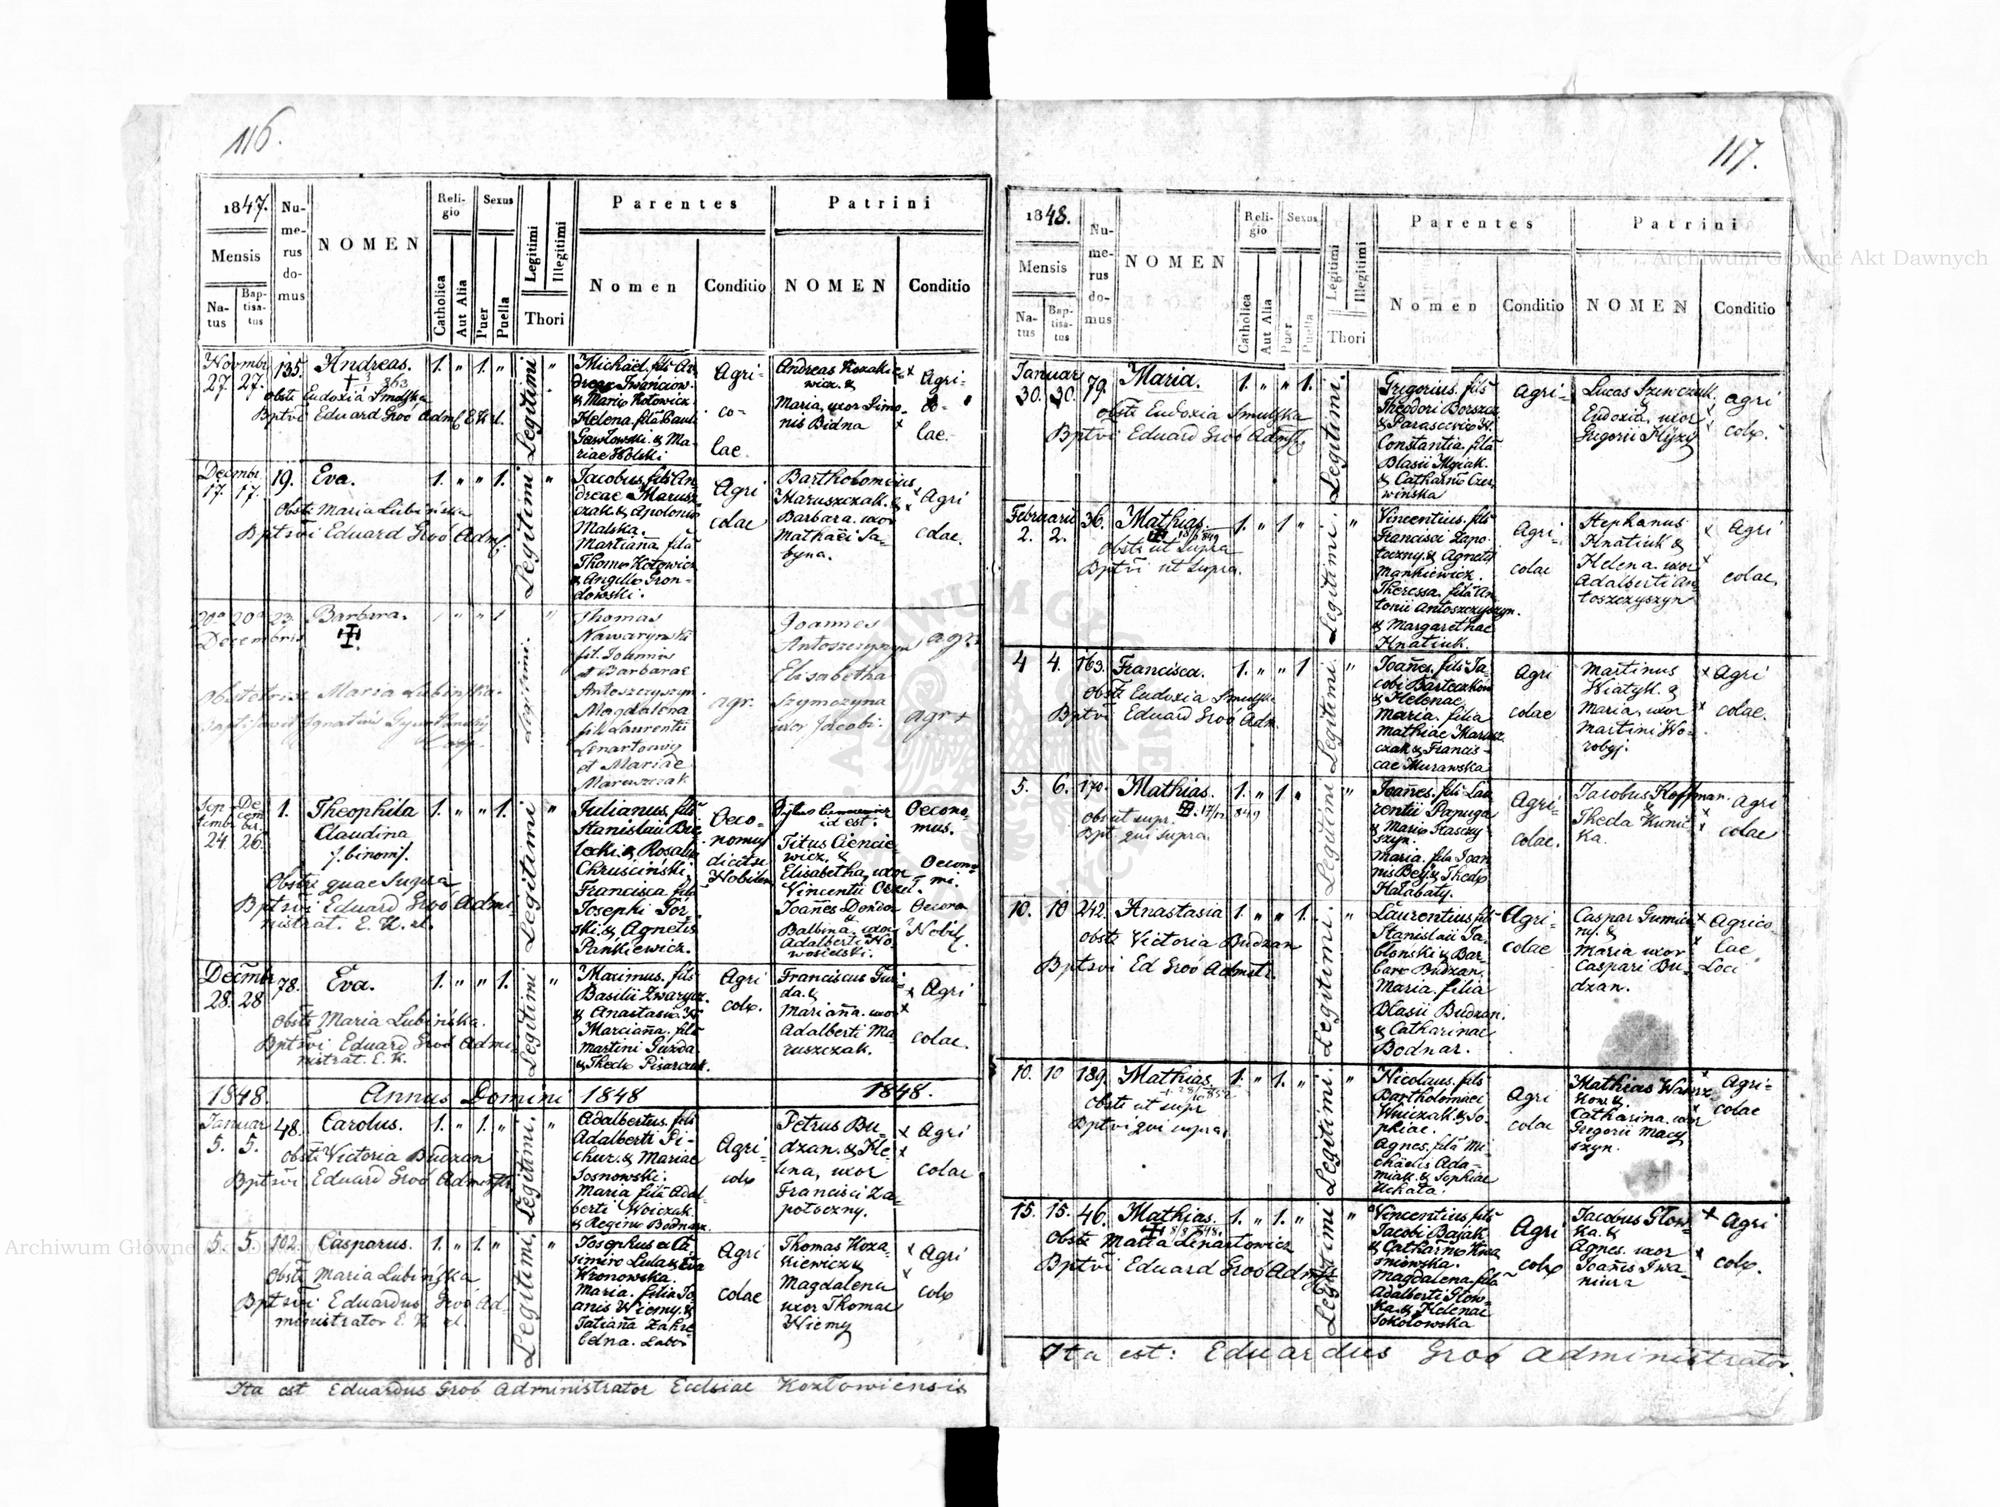 116.
1847.
Mensis
Na-
tus
Bap-
tisa-
tus
Nu-
me-
rus
do-
mus
NOMEN
Reli-
gio
Catholica
Aut Alia
Sexus
Puer
Puella
Legitimi
Illegitimi
Thori
Parentes
Nomen
Conditio
Patrini
NOMEN
Conditio
Novmbr
27. 27. 135. Andreas. 1. " 1. " Legitimi "
Obstr Eudoxia Smulska
Bptvi Eduard Groó Adm
Michaël fils An
dreae Iwanciow
& Maria Kotowicz
Helena fila Pauli
Gawłowski & Ma-
riae Wolski
Agri-
co-
lae.
Andreas Kozakie
wicz. &
Maria, uxor Simo-
nis Bidna
Agri-
co-
lae.
Decmbr
17. 17. 19. Eva. 1. " " 1. Legitimi "
Obstr Maria Lubińska
Bptsvi Eduard Groó Adm
Jacobus, fils An
dreae Marusz
czak & Apolonia
Malska.
Martiana fila
Thoma Kotowicz
& Angella Gron-
dowski.
Agri
colae
Bartholomeus
Maruszczak. &
Barbara. uxor
Mathaei Sa-
byna.
Agri
colae.
20a 20a 23. Barbara.
Decembris
Obstetrix Maria Lubinska
Legitimi.
Thomas
Nawarynski
fil. Joannis
et Barbarae
Antoszczyszyn.
Magdalena
fil. Laurentii
Lenartowicz
et Mariae
Maruszczak
agr.
Joannes
Antoszczyszyn
Elisabetha
Szymczyna
uxor Jacobi.
agr.
agr +
Sep
temb
24
De
cem
br.
26.
1. Theophila 1. " " 1. Legitimi "
Claudina
f. binom.
Obstr quae Supra
Bptsvi Eduard Groó Admi-
nistrat. E. K. rl.
Julianus, fils
Stanislai Bie
locki & Rosaliae
Chruściński,
Francisca fila
Josephi Gor
ski & Agnetis
Pankiewicz.
Oeco-
nomus
dicitse
Nobilem
id est.
Titus Cieńcie-
wicz, &
Elisabetha, uxor
Vincentii
Joañes Dondor
&
Balbina, uxor
Adalberti No-
wosielski.
Oecono-
mus.
Oecono-
mi.
Nobil.
Decmbr
28. 28 78. Eva. 1. " " 1. Legitimi "
Obstr Maria Lubińska.
Bptsvi Eduard Groó Admi-
nistrat. E. K.
Maximus. fils
Basilii Zwarycz.
& Anastasia
Marciana. fila
Martini Guzda
& Thecla Pisarczuk.
Agri
colae.
Franciscus Guz-
da. &
Mariana. uxor
Adalberti Ma-
ruszczak.
Agri
colae.
1848. Annus Domini 1848 1848.
Januar
5. 5. 48. Carolus. 1. " 1. " Legitimi. "
Obstr Victoria Budzan
Bptsvi Eduard Groó Admnstr.
Adalbertus. fils
Adalberti Pi-
chur. & Mariae
Sosnowski.
Maria fila Adal-
berti Woiczak.
& Regina Bodnarz.
Agri-
colae
Petrus Bu-
dzan. & He-
lena, uxor
Francisci Za-
potoczny.
Agri
colae
5. 5. 102. Casparus. 1. " 1. " Legitimi. "
Obstr Maria Lubińska
Bptsvi Eduardus Groó Ad-
ministrator E. K. rl.
Josephus ex Ca
simiro Lula & Eva
Wronowska.
Maria. filia Jo-
anis Wiemy. &
Tatiana
Agri
colae
Thomas Koza-
kiewicz &
Magdalena
uxor Thomae
Wiemy
Agri
colae
Ita est Eduardus Groó Administrator Ecclsiae Kozłowiensis
117.
1848.
Mensis
Na-
tus
Bap-
tisa-
tus
Nu-
me-
rus
do-
mus
NOMEN
Reli-
gio
Catholica
Aut Alia
Sexus
Puer
Puella
Legitimi
Illegitimi
Thori
Parentes
Nomen
Conditio
Patrini
NOMEN
Conditio
Januar
30. 30. 79. Maria. 1. " " 1. Legitimi.
Obstr Eudoxia Smulska
Bptvi Eduard Groó Admstr
Gregorius. fils
Theodori Borszcz
& Parascevia
Constantia. fila
Blasii Mysak.
& Catharina Czer
wińska
Agri-
Lucas Szewczuk
&
Eudoxia, uxor
Gregorii Hyży
agri
colae.
Februarii
2. 2. 36. Mathias. 1. " 1. " Legitimi. "
Obstr ut Supra
Bptvi ut Supra.
Vincentius. fils
Francisci Zapo
toczny. & Agnetis
Mankiewicz.
Theressa. fila An
tonii Antoszczyszyn.
& Margarethae
Hnatiuk.
Agri-
colae
Stephanus
Hnatiuk &
Helena. uxor
Adalberti An
toszczyszyn
Agri
colae.
4 4. 163. Francisca. 1. " " 1 Legitimi. "
Obstr Eudoxia Smulska
Bptvi Eduard Groó Adm.
Joañes. fils Ja-
cobi Barteczków
& Helenae
Maria. filia
Mathiae Marusz
czak & Francis-
cae Murawska
Agri
colae
Martinus
Wiatyk. &
Maria, uxor
Martini Wo-
robyj.
Agri
colae.
5. 6. 170. Mathias. 1. " 1 " Legitimi "
Obs ut supr.
Bpt. qui supra.
Joañes. fils Lau
rentii Papuga
& Maria Stasczy-
szyn.
Maria. fila Joan
nis Bey & Thecla
Hałabaty.
Agri-
colae.
Jacobus Hoffman.
&
Theda Kunic-
ka.
Agri
colae
10. 10 242. Anastasia 1. " " 1. Legitimi. "
Obstr Victoria Budzan
Bptsvi Ed Groó Admstr.
Laurentius fils
Stanislaii Ja-
błonski & Bar-
bara Budzan.
Maria. filia
Blasii Budzan.
& Catharinae
Bodnar.
Agri-
colae
Caspar Gumien
ny. &
Maria uxor
Caspari Bu-
dzan.
Agrico-
lae
Loci
10. 10 189. Mathias. 1. " 1. " Legitimi. "
Obstr ut supr
Bptvi qui supra.
Nicolaus. fils
Bartholomaei
Woiczak. & So-
phiae.
Agnes. fila Mi-
chaëlis Ada-
miak. & Sophiae
Uchata.
Agri
colae
Mathias Wansz
kow. &
Catharina. uxor
Gregorii Macy
szyn.
Agri-
colae
15. 15. 46. Mathias. 1. " 1. " Legitimi "
Obstr Maria Lenartowicz
Bptvi Eduard Groó Admstr
Vincentius. fils
Jacobi Bajak
& Catharina Kwa
śniowska.
Magdalena. fila
Adalberti Głow-
ka. & Helenae
Sokołowska
Agri
colae
Jacobus Głow-
ka. &
Agnes. uxor
Joañis Iwa-
niura
Agri
colae.
Ita est: Eduardus Groó Administrator.
Archiwum Główne Akt Dawnych
Archiwum Główne Akt Dawnych